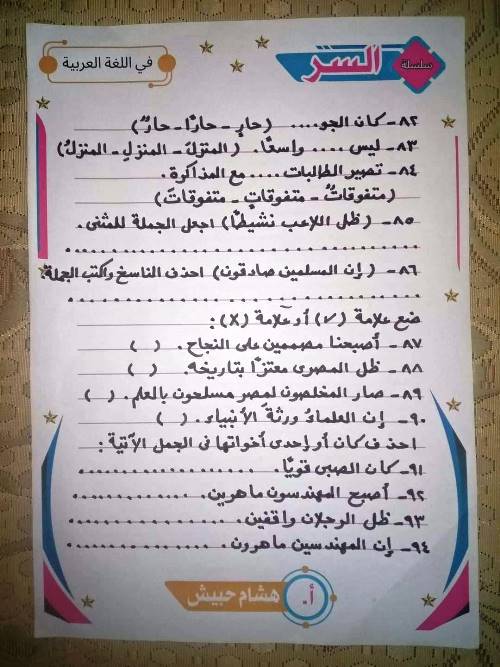 سلسلة
السر
في اللغة العربية
٨٢- كان الجو.... (حارٍ - حارًا - حارٌ)
٨٣- ليس .... واسعًا. (المنزلَ - المنزلِ - المنزلُ)
٨٤- تصير الطالبات .... مع المذاكرة.
(متفوقاتٌ - متفوقاتٍ - متفوقاتَ)
٨٥- (ظل اللاعب نشيطًا) اجعل الجملة للمثنى.
٨٦- (إن المسلمين صادقون) احذف الناسخ واكتب الجملة.
ضع علامة (✓) أو علامة (X):
٨٧- أصبحنا مصممين على النجاح. ( )
٨٨- ظل المصرى معتزًا بتاريخه. ( )
٨٩- صار المخلصون لمصر مسلحون بالعلم. ( )
٩٠- إن العلماءُ ورثةَ الأنبياء. ( )
احذف كان أو إحدى أخواتها فى الجمل الآتية:
٩١- كان الصبى قويًا.
٩٢- أصبح المهندسون ماهرين.
٩٣- ظل الرجلان واقفين.
٩٤- إن المهندسين ماهرون.
أ. هشام حبيش